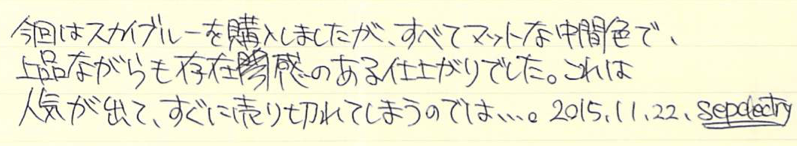 今回はスカイブルーを購入しましたが、すべてマットな中間色で、
上品ながらも存在感のある仕上がりでした。これは
人気が出て、すぐに売り切れてしまうのでは…。2015.11.22.